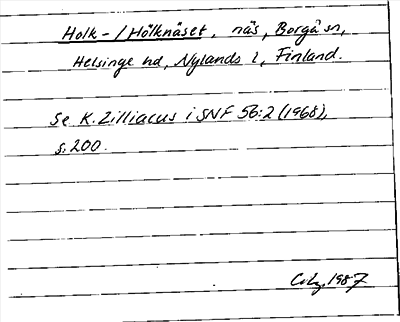 Holk-/Hölknäset, näs, Borgå sn,
Helsinge hd, Nylands l, Finland.
Se K. Zilliacus i SNF 56:2 (1968),
s. 200.
1987